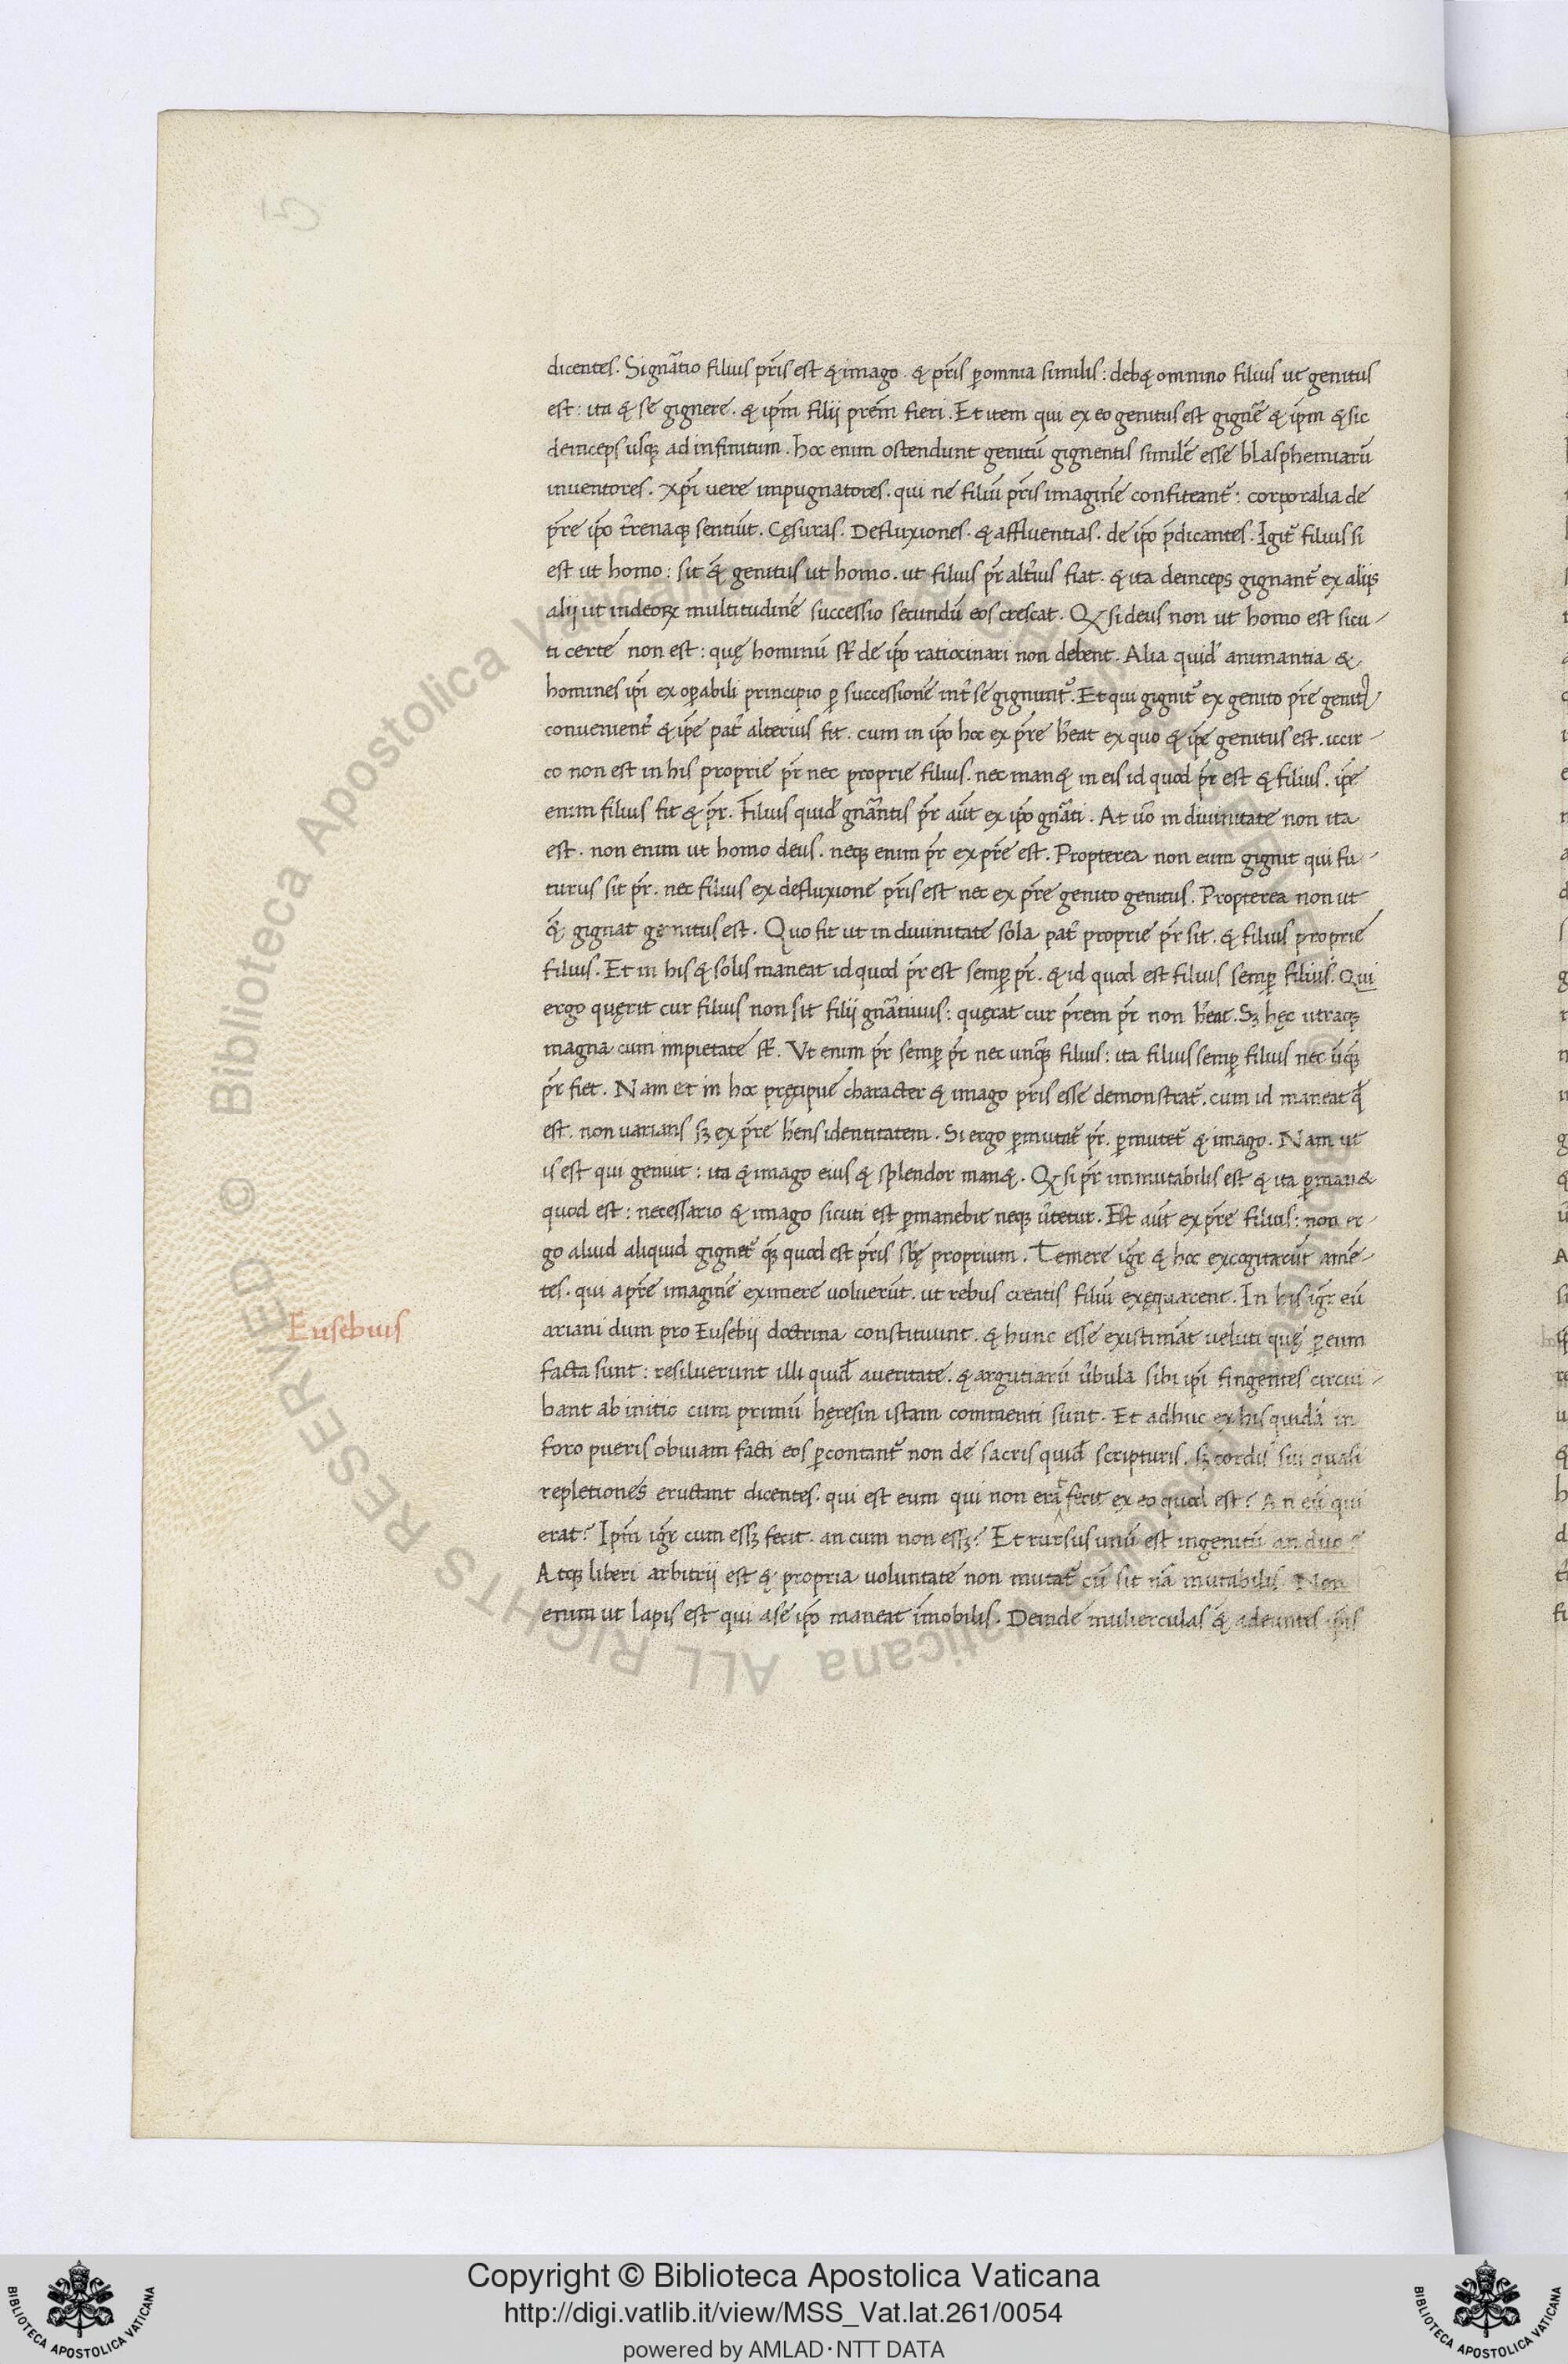 dicentes. Si gñatio filius p̃ris est & imago. & p̃ris ꝑ omnia similis: deb& omnino filius ut genitus
est: ita & se gignere. & ip̃m filii prem̃ fieri. Et item qui ex eo genitus est gignẽ & ip̃m & sic
deinceps usq; ad infinitum. hoc enim ostendunt genitũ gignentis similẽ esse blasphemiarũ
inventores. xp̃i vere impugnatores. qui ne filiũ p̃ris imaginẽ confiteant̃: corporalia de
p̃re ip̃o t̃renaq; sentiũt. Cęsuras. Defluxiones. & affluentias. de ip̃o p̃dicantes. Igit̃ filius si
est ut homo: sit & genitus ut homo. ut filius p̃r alt̃ius fiat. & ita deinceps gignant̃ ex aliis
alii ut in deoꝝ multitudinẽ successio secundũ eos crescat. Qđ si deus non ut homo est sicu-
ti certe non est: quę hominũ st̃ de ip̃o ratiocinari non debent. Alia quid̃ animantia &
homines ip̃i ex opabili principio ꝑ successionẽ int̃ se gignunt̃. Et qui gignit̃ ex genito p̃re genit9
convenient̃ & ip̃e pat̃ alterius fit. cum in ip̃o hoc ex p̃re h̃eat ex quo & ip̃e genitus est. iccir-
co non est in his proprie p̃r nec proprie filius. nec man& in eis id quod p̃r est & filius. ip̃e
enim filius fit & p̃r. Filius quid̃ gñantis p̃r aũt ex ip̃o gñati. At ũo in divinitate non ita
est. non enim ut homo deus. neq; enim p̃r ex p̃re est. Propterea non eum gignit qui fu-
turus sit p̃r. nec filius ex defluxione p̃ris est nec ex p̃re genito genitus. Propterea non ut
& gignat genitus est. Quo fit ut in divinitate sola pat̃ proprie p̃r sit. & filius proprie
filius. Et in his & solis maneat id quod p̃r est semꝑ p̃r. & id quod est filius semꝑ filius. Qui
ergo quęrit cur filius non sit filii gñativus: quęrat cur p̃rem p̃r non h̃eat. Sʒ hęc utraq;
magna cum impietate st̃. Ut enim p̃r semꝑ p̃r nec unq̃ʒ filius: ita filius semꝑ filius nec ũq̃ʒ
p̃r fiet. Nam et in hoc pręcipue character & imago p̃ris esse demonstrat̃. cum id maneat qđ
est. non varians sʒ ex p̃re h̃ens identitatem. Si ergo ꝑmutat̃ p̃r. ꝑmutet̃ & imago. Nam ut
is est qui genuit: ita & imago eius & splendor man&. Qđ si p̃r immutabilis est & ita ꝑman&
quod est: necessario & imago sicuti est ꝑmanebit neq; ũtetur. Est aũt ex p̃re filius: non er-
go aliud aliquid gignet̃ q̃ʒ quod est p̃ris sb̃ę proprium. Temere ig̃r & hoc excogitarũt amẽ-
tes. qui a p̃re imaginẽ eximere voluerũt. ut rebus creatis filiũ exęquarent. In his ig̃r eũ
Eusebius
ariani dum pro Eusebii doctrina constituunt. & hunc esse existimãt veluti quę ꝑ eum
facta sunt: resiluerunt illi quid̃ a veritate. & argutiarũ ũbula sibi ip̃i fingentes circui-
bant ab initio cum primũ hęresin istam commenti sunt. Et adhuc ex his quidã in
foro pueris obviam facti eos ꝑcontant̃ non de sacris quid̃ scripturis. sʒ cordis sui quasi
repletiones eructant dicentes. qui est eum qui non erat fecit ex eo quod est? An eũ qui
erat? Ip̃m ig̃r cum essʒ fecit. an cum non essʒ? Et rursus unũ est ingenitũ an duo?
Atq; liberi arbitrii est & propria voluntate non mutat̃ cũ sit nã mutabilis. Non
enim ut lapis est qui a se ip̃o maneat ĩmobilis. Deinde mulierculas & adeuntes ip̃is
Copyright © Biblioteca Apostolica Vaticana
http://digi.vatlib.it/view/MSS_Vat.lat.261/0054
powered by AMLAD·NTT DATA
BIBLIOTECA APOSTOLICA VATICANA
BIBLIOTECA APOSTOLICA VATICANA
Biblioteca Apostolica Vaticana ALL RIGHTS RESERVED ©